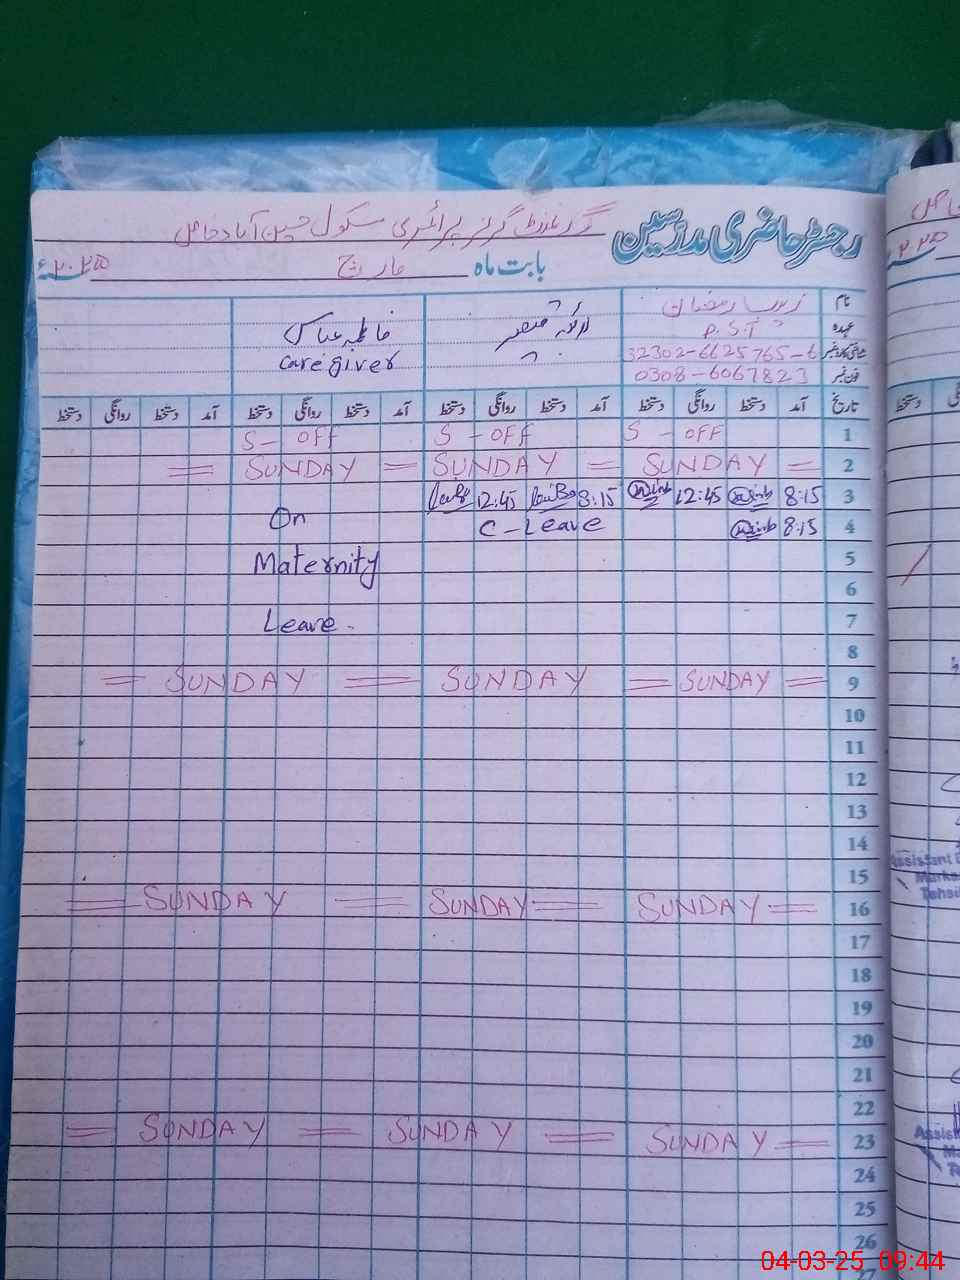 رجسٹر حاضری مدرسین گورنمنٹ گرلز پرائمری سکول حسین آباد خاص
بابت ماہ مارچ ۲۰۲۵ء
نام زیبا رمضان فاطمہ عباس
عہدہ P.S.T Caregiver
شناختی کارڈ نمبر 32302-6625765-6
فون نمبر 0308-6067823
تاریخ آمد دستخط روانگی دستخط آمد دستخط روانگی دستخط آمد دستخط روانگی دستخط آمد دستخط روانگی دستخط
1 S - OFF S - OFF S - OFF
2 = SUNDAY = SUNDAY = SUNDAY =
3 8:15 12:45 8:15 12:45
4 8:15 C - Leave On
5 Maternity
6
7 Leave -
8
9 = SUNDAY = SUNDAY = SUNDAY =
10
11
12
13
14
15
16 = SUNDAY = SUNDAY = SUNDAY =
17
18
19
20
21
22
23 = SUNDAY = SUNDAY = SUNDAY =
24
25
26
27
04-03-25 09:44